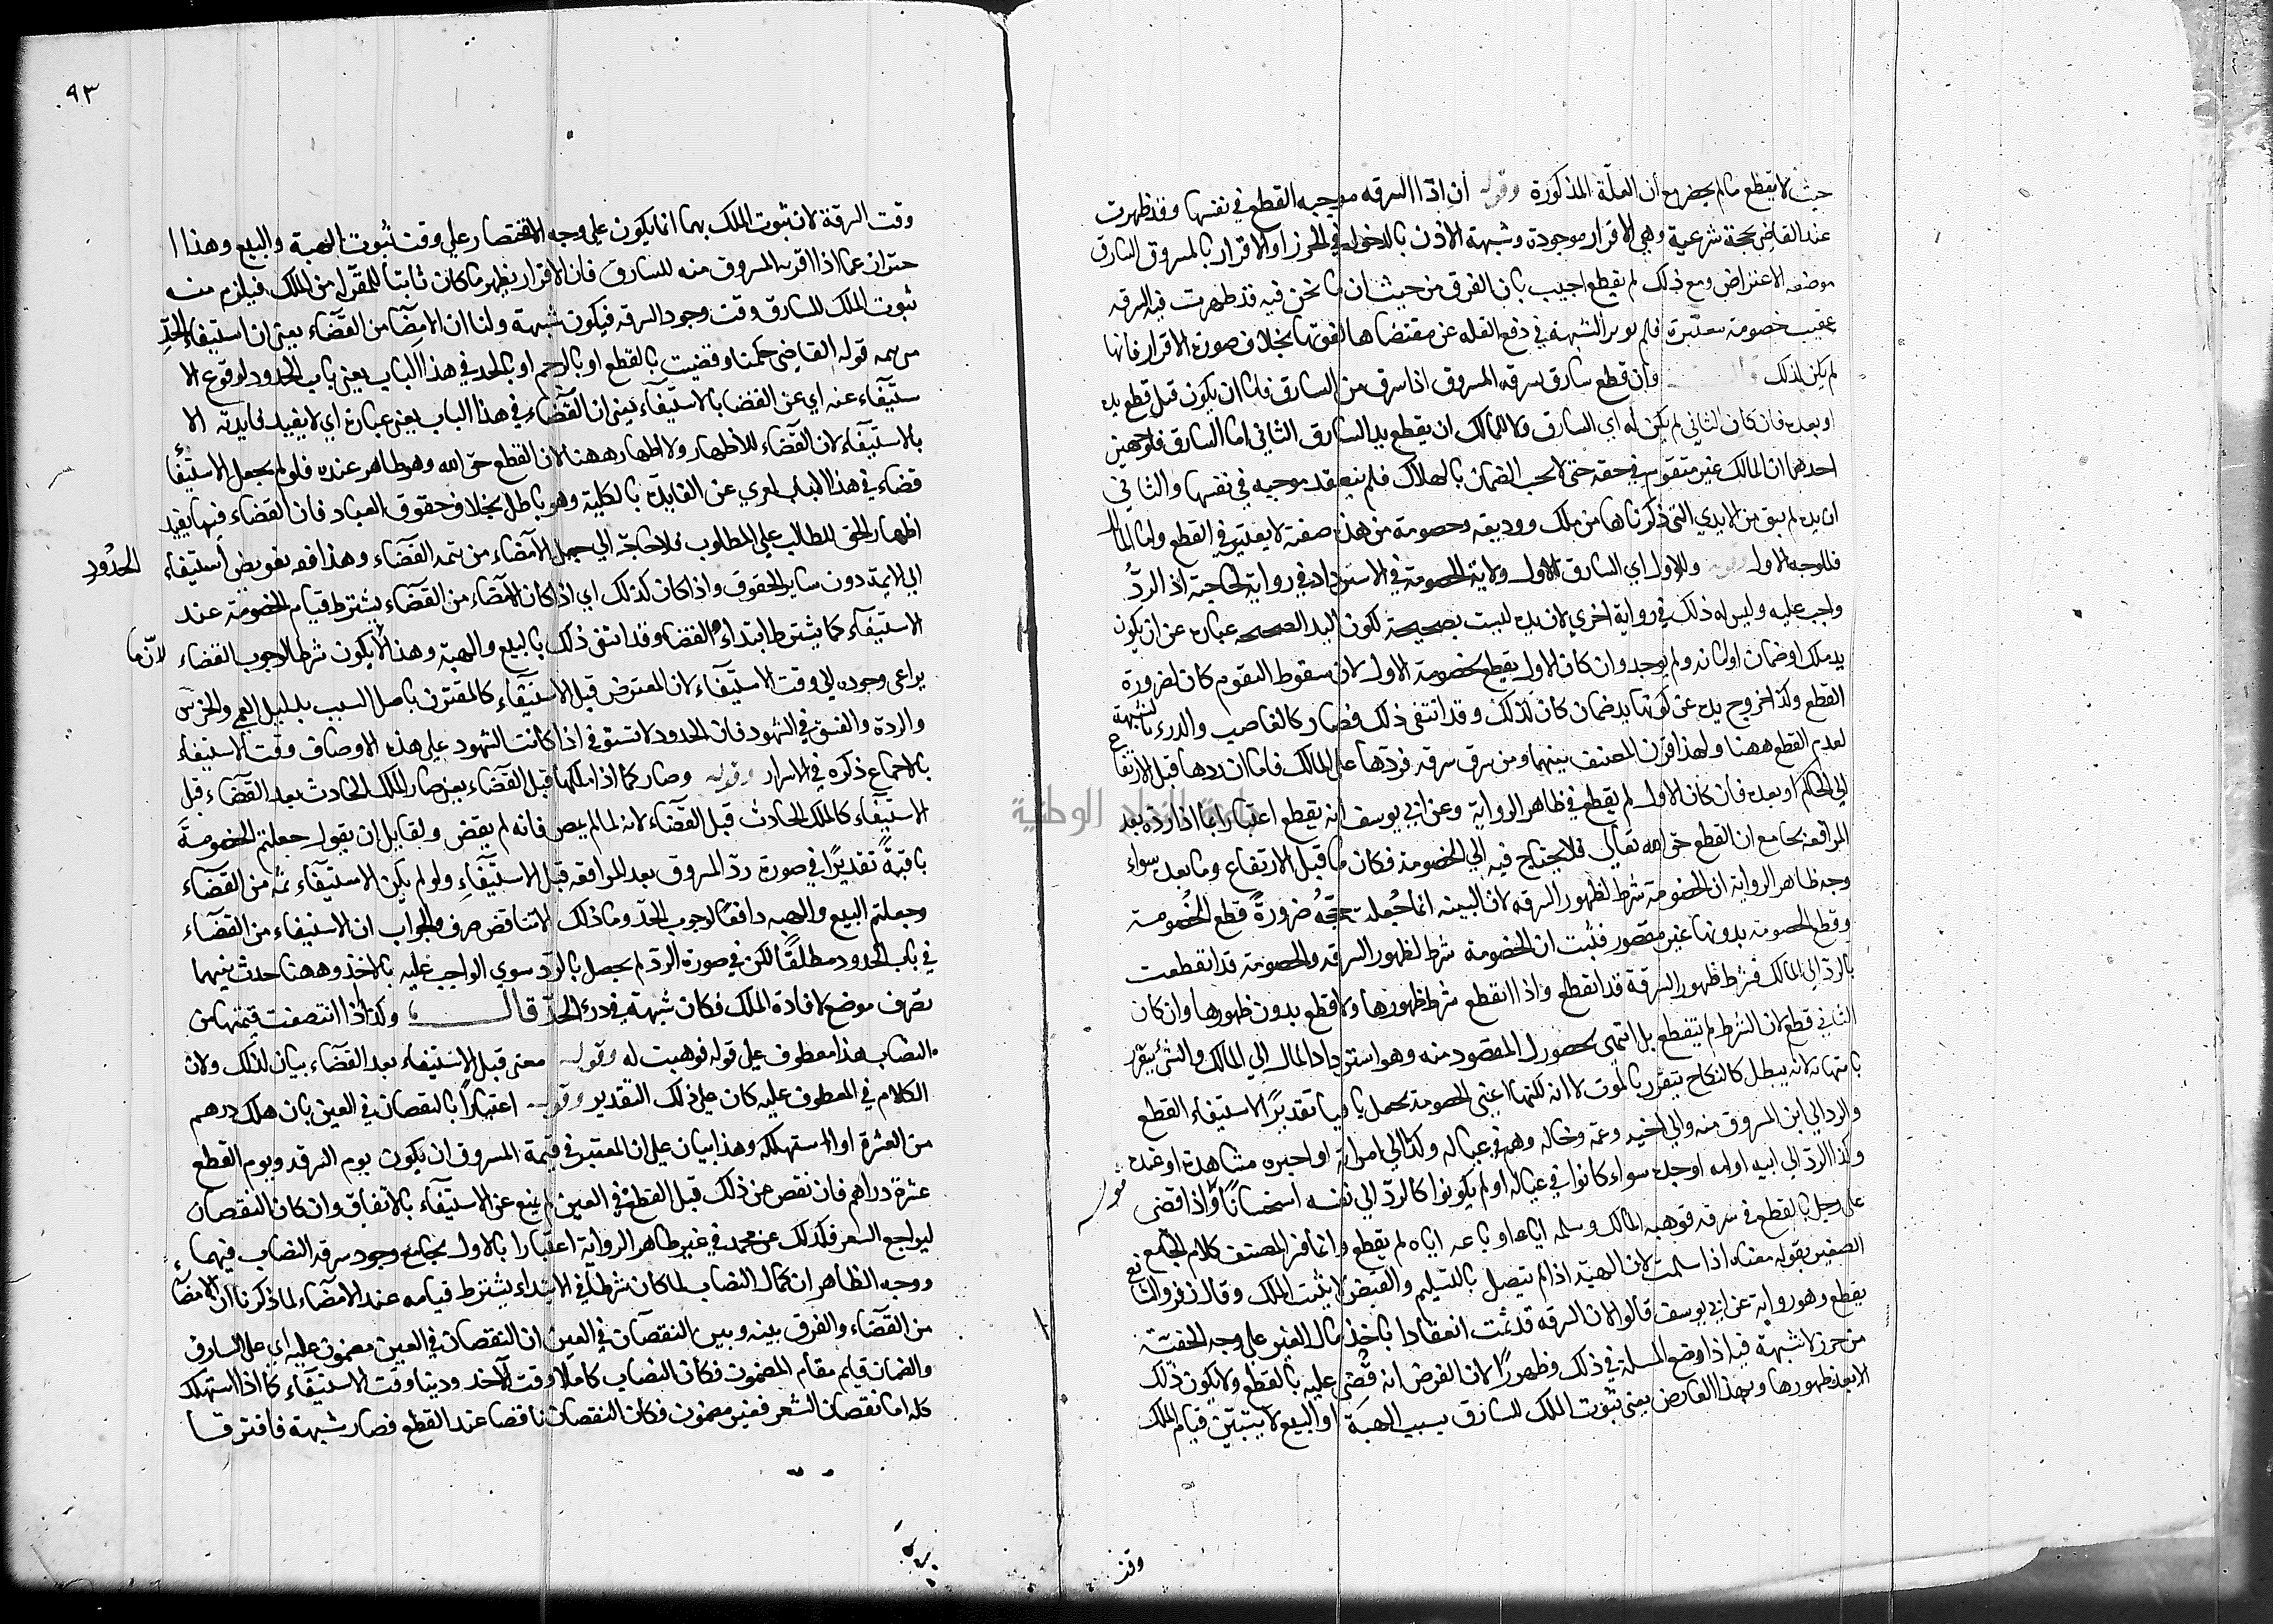 حيث لا يقطع ما لم يحضر مع ان العلة المذكورة وقوله ان اذا السرقه موجبه القطع في نفسها وقد ظهرت
عند القاضي بحجة شرعية وهي الاقرار موجودة وشبهة الاذن بالدخول في الحرز او الاقرار بالمسروق السارق
موضعه الاعتراض ومع ذلك لم يقطع اجيب بان الفرق من حيث ان ما نحن فيه قد ظهرت فيه السرقه
عقيب خصومة معتبرة فلم يوثر الشبهة في دفع القطع عن مقتضاها لقوتها بخلاف صورة الاقرار فانها
لم يكن كذلك قال وان قطع سارق بسرقه المسروق اذا سرق من السارق فاما ان يكون قبل قطع يده
او بعده فان كان الثاني لم يكن له اي السارق ولا للمالك ان يقطع يد السارق الثاني اما السارق فلوجهين
احدهما ان المالك غير متقوم في حقه حتى لا يجب الضمان بالهلاك فلم ينعقد موجبه في نفسها والثاني
ان يده لم يبق من الايدي التي ذكرناها من ملك ووديعة وخصومة من هذه صفته لا يعتبر في القطع واما المالك
فللوجه الاول وقوله وللاول اي السارق الاول ولاية الخصومة في الاسترداد في رواية لحاجته اذ الردّ
واجب عليه وليس له ذلك في رواية اخري لان يده ليست بصحيحة لكون اليد الصحيحه عبارة عن ان يكون
يد ملك او ضمان او امانه ولم يوجد وان كان الاول يقطع بخصومة الاول لان سقوط التقوم كان لضرورة
القطع وكذا خروج يده عن كونها يد ضمان كان لذلك وقد انتفى ذلك فصار كالغاصب والدرء بالشبهة
لعدم القطع ههنا ولهذا قرن المصنف بينهما ومن سرق سرقه فردّها على المالك فاما ان ردها قبل الارتفاع
الي الحاكم او بعده فان كان الاول لم يقطع في ظاهر الرواية وعن ابي يوسف انه يقطع اعتبارا بما اذا ردّه بعد
المرافعة بجامع ان القطع حق الله تعالى فلا يحتاج فيه الي الخصومة فكان ما قبل الارتفاع وما بعده سواء
وجه ظاهر الرواية ان الخصومة شرط لظهور السرقه لان البينه انما جُعلت حجّةً ضرورةً قطع الخصومة
وقطع الخصومة بدونها غير مقصور فثبت ان الخصومة شرط لظهور السرقه والخصومة قد انقطعت
بالردّ الي المالك فشرط ظهور السرقة قد انقطع واذا انقطع شرط ظهورها ولا قطع بدون ظهورها وان كان
الثاني قطع لان الشرط لم ينقطع بل انتهى بحصول المقصود منه وهو استرداد المال الي المالك والشئ يتقرر
بانتهائه لا انه يبطل كالنكاح يتقرر بالموت لا انه للتها اعني الخصومة يجعل باقيا تقديرًا لاستيفاء القطع
والرد الي ابن المسروق منه والي اخيه وعمّه وخاله وهم في عياله وكذا الي امراته او اجيره مشاهدة او عبده
وكذا الردّ الي ابيه او امه او جده سواء كانوا في عياله او لم يكونوا كالردّ الي نفسه استحسانًا واذا قضى
على رجل بالقطع في سرقه فوهبه المالك وسلمه اياها او باعه اياه لم يقطع وانما فسر المصنف كلام الجامع
الصغير بقوله معناه اذا سلمت لان الهبة اذا لم يتصل بالتسليم والقبض لا يثبت الملك وقال زفر والشافعي
يقطع وهو رواية عن ابي يوسف قالوا لان السرقه قد تمت انعقادا باخذ مال الغير على وجه الخفية
من حرز لا شبهة فيه اذا وضع المسلة في ذلك وظهورًا لان الفرض انه قُضي عليه بالقطع ولا يكون ذلك
الا بعد ظهورها وبهذا العارض يعني ثبوت الملك للسارق بسبب الهبة او البيع لا يتبيّن قيام الملك
وقت
٩٣
وقت السرقة لان ثبوت الملك بهما انما يكون على وجه الاقتصار على وقت ثبوت الهبة والبيع وهذا ا
حتراز عما اذا اقر به المسروق منه للسارق فان الاقرار يظهر ما كان ثابتا للمقرّ له من الملك فيلزم منه
ثبوت الملك للسارق وقت وجود السرقه فيكون شبهة ولنا ان الامضآ من القضآء يعني ان استيفاء الحدّ
من تتمه قوله القاضي حكمنا وقضيت بالقطع او بالرجم او بالحد في هذا الباب يعني باب الحدود لوقوع الا
ستيفآء عنه اي عن القضا بالاستيفآء يعني ان القضآء في هذا الباب يعني عبارة اي لا يفيد فايدته الا
بالاستيفآء لان القضاء للاظهار ولا اظهار ههنا لان القطع حق الله وهو ظاهر عنده فلو لم يجعل الاستيفآ
قضاء في هذا الباب لعري عن الفايدة بالكلية وهو باطل بخلاف حقوق العباد فان القضاء فيها يفيد
اظهار الحق للطالب على المطلوب فلا حاجة الي جعل الامضاء من تتمه القضآء وهذا فقه تفويض استيفاء الحدود
الي الايمة دون ساير الحقوق واذا كان كذلك اي اذا كان الامضآء من القضآء يشترط قيام الخصومة عند
الاستيفآء كما يشترط ابتداء القضا وقد انتفى ذلك بالبيع والهبة وهذا لا يكون شرطا لوجوب القضاء لان ما
يراعى وجوده الي وقت الاستيفآء لان المعترض قبل الاستيفآء كالمقترن باصل السبب بدليل العمي والخرس
والردة والفسق في الشهود فان الحدود لا تستوفى اذا كانت الشهود على هذه الاوصاف وقت الاستيفاء
بالاجماع ذكره في الاسرار وقوله وصار كما اذا ملكها قبل القضاء يعني صار الملك الحادث بعد القضآء قبل
الاستيفآء كالملك الحادث قبل القضآء لانه لما لم يمض فانه لم يقض ولقايل ان يقول جعلتم الخصومة
باقيةً تقديرًا في صورة ردّ المسروق بعد المرافعه قبل الاستيفآء ولو لم يكن الاستيفآء ثمّه من القضآء
وجعلتم البيع والهبه دافعًا لوجوب الحدّ وما ذلك الا تناقض صرف والجواب ان الاستيفاء من القضآء
في باب الحدود مطلقًا لكن في صورة الردّ لم يحصل بالردّ سوي الواجب عليه بالاخذ وههنا حدث بينهما
تصرف موضع لافادة الملك فكان شبهة في درء الحدّ قال وكذا اذا انتقصت قيمتها من
النصاب هذا معطوف على قوله فوهبت له وقوله معنى قبل الاستيفاء بعد القضآء بيان لذلك ولان
الكلام في المعطوف عليه كان على ذلك التقدير وقوله اعتبارًا بالنقصان في العين بان هلك درهم
من العشرة او استهلكه وهذا بيان على ان المعتبر في قيمة المسروق ان يكون يوم السرقه ويوم القطع
عشرة دراهم فان نقص عن ذلك قبل القطع في العين لم يمنع عن الاستيفآء بالاتفاق وان كان النقصان
ليواجع السعر فكذلك عن محمد في غير ظاهر الرواية اعتبارا بالاول بجامع وجود سرقه النصاب فيهما
ووجه الظاهر ان كمال النصاب لما كان شرطا في الابتداء يشترط قيامه عند الامضآء لما ذكرنا ان الامضآ
من القضآء والفرق بينه وبين النقصان في العين ان النقصان في العين مضمون عليه اي على السارق
والضمان قايم مقام المضمون فكان النصاب كاملا وقت الاخد ودينا وقت الاستيفآء كما اذا استهلك
كله اما نقصان السعر فغير مضمون فكان النقصان ناقصا عند القطع فصار شبهة فافترقا